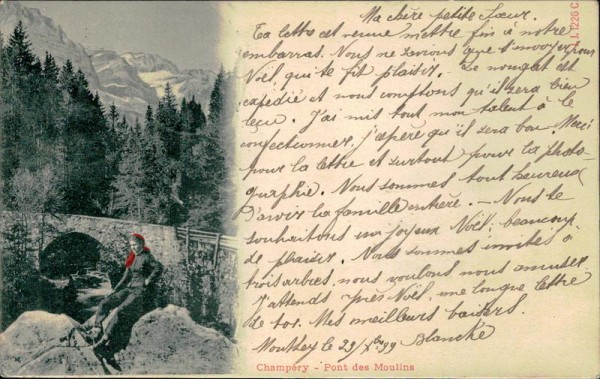 Ma chère petite Sœur.
Ta lettre est venue mettre fin à notre
embarras. Nous ne savions que t'envoyer pour
Noël, qui te fit plaisir. Le nougat est
expédié et nous comptons qu'il sera bien
reçu. J'ai mis tout mon talent à le
confectionner, j'espère qu'il sera bon. Merci
pour la lettre et surtout pour la photo-
graphie. Nous sommes tout heureux
d'avoir la famille entière. – Nous te
souhaitons un joyeux Noël, beaucoup
de plaisir. Nous sommes invités à
trois arbres, nous voulons nous amuser.
J'attends près Noël, une longue lettre
de toi. Mes meilleurs baisers.
Monthey le 23/Xbre 99 Blanche
Champéry - Pont des Moulins
1226 C